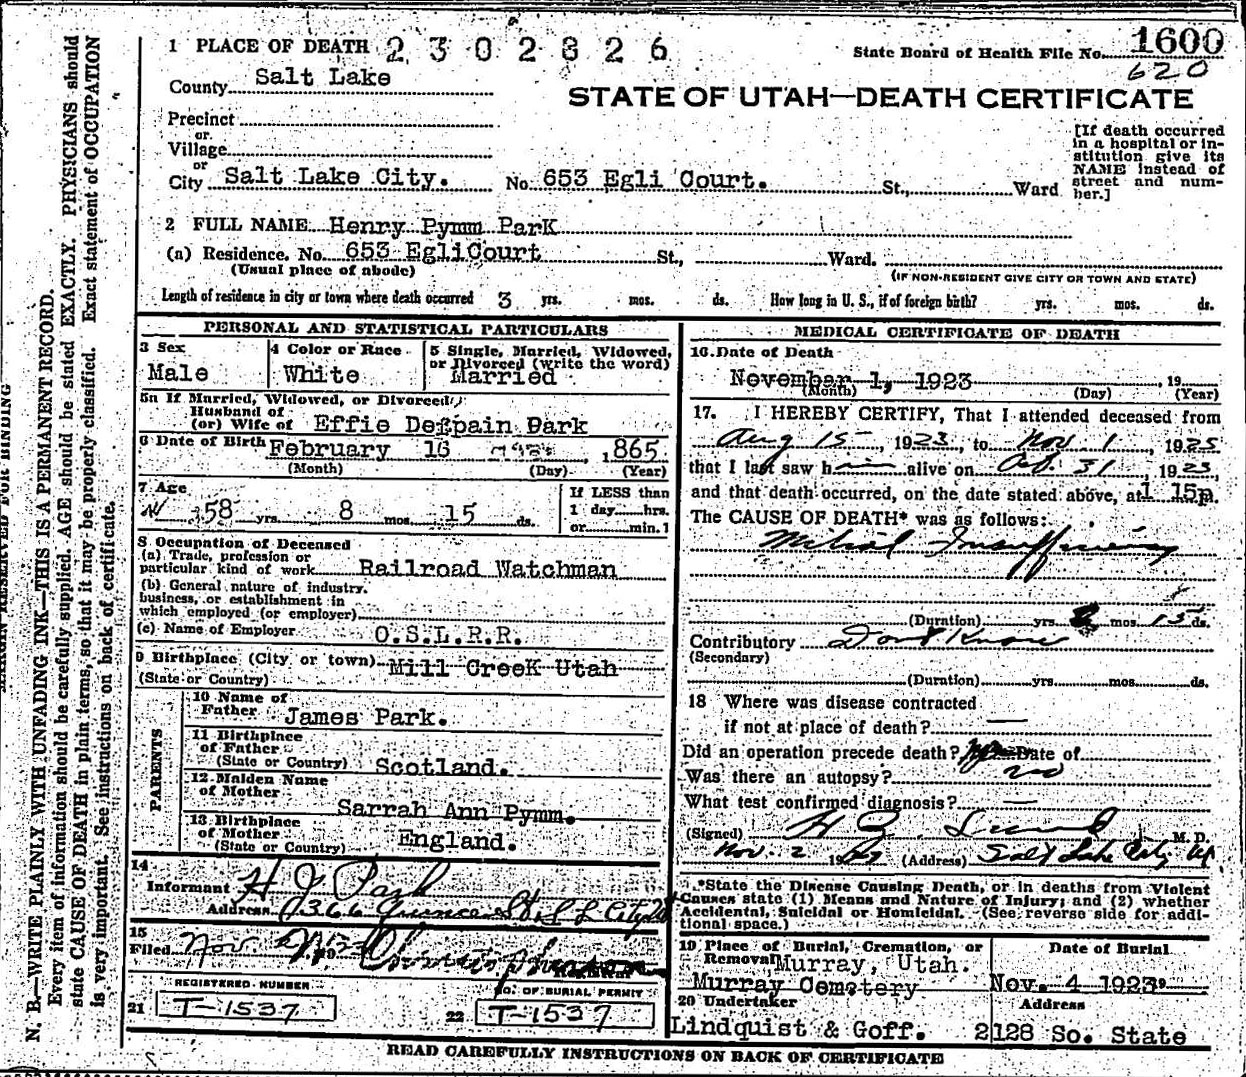 1 PLACE OF DEATH 2302826
State Board of Health File No. 1600
620
County Salt Lake
STATE OF UTAH—DEATH CERTIFICATE
Precinct
or
Village
or
City Salt Lake City. No. 653 Egli Court. St., Ward
[If death occurred
in a hospital or in-
stitution give its
NAME instead of
street and num-
ber.]
2 FULL NAME Henry Pymm Park
(a) Residence. No. 653 Egli Court St., Ward.
(Usual place of abode) (IF NON-RESIDENT GIVE CITY OR TOWN AND STATE)
Length of residence in city or town where death occurred 3 yrs. mos. ds. How long in U. S., if of foreign birth? yrs. mos. ds.
PERSONAL AND STATISTICAL PARTICULARS
3 Sex
Male
4 Color or Race
White
5 Single, Married, Widowed,
or Divorced (write the word)
Married
5a If Married, Widowed, or Divorced
Husband of
(or) Wife of Effie Despain Park
6 Date of Birth February 16 1865
(Month) (Day) (Year)
7 Age
58 yrs. 8 mos. 15 ds.
If LESS than
1 day hrs.
or min.
8 Occupation of Deceased
(a) Trade, profession or
particular kind of work Railroad Watchman
(b) General nature of industry,
business, or establishment in
which employed (or employer)
(c) Name of Employer O.S.L.R.R.
9 Birthplace (City or town) Mill Creek Utah
(State or Country)
PARENTS
10 Name of
Father James Park.
11 Birthplace
of Father
(State or Country) Scotland.
12 Maiden Name
of Mother Sarrah Ann Pymm.
13 Birthplace
of Mother
(State or Country) England.
14
Informant H J Park
Address 1366 St S L City
15
Filed Nov.
REGISTERED NUMBER
21 T-1537
NO. OF BURIAL PERMIT
22 T-1537
MEDICAL CERTIFICATE OF DEATH
16. Date of Death
November 1, 1923 , 19
(Month) (Day) (Year)
17. I HEREBY CERTIFY, That I attended deceased from
Aug 15, 1923, to Nov 1, 1923
that I last saw him alive on Oct. 31 1923
and that death occurred, on the date stated above, at 1 15p.
The CAUSE OF DEATH* was as follows:
Mitral Insufficiency
(Duration) yrs. mos. 15 ds.
Contributory Don't Know
(Secondary)
(Duration) yrs. mos. ds.
18 Where was disease contracted
if not at place of death? —
Did an operation precede death? Date of
Was there an autopsy? no
What test confirmed diagnosis? —
(Signed) M. D.
Nov. 2 19 (Address) Salt Lake City Ut
*State the Disease Causing Death, or in deaths from Violent
Causes state (1) Means and Nature of Injury; and (2) whether
Accidental, Suicidal or Homicidal. (See reverse side for addi-
tional space.)
19 Place of Burial, Cremation, or
Removal Murray, Utah.
Murray Cemetery
Date of Burial
Nov. 4 1923
20 Undertaker
Lindquist & Goff.
Address
2128 So. State
READ CAREFULLY INSTRUCTIONS ON BACK OF CERTIFICATE
MARGIN RESERVED FOR BINDING
N. B.—WRITE PLAINLY WITH UNFADING INK—THIS IS A PERMANENT RECORD.
Every item of information should be carefully supplied. AGE should be stated EXACTLY. PHYSICIANS should
state CAUSE OF DEATH in plain terms, so that it may be properly classified. Exact statement of OCCUPATION
is very important. See instructions on back of certificate.